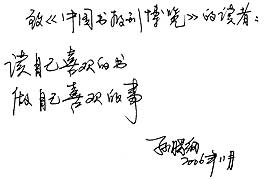 致《中国书报刊博览》的读者：
读自己喜欢的书
做自己喜欢的事
孙晓
2006年11月